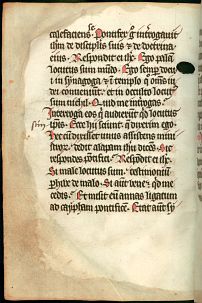 se
calefaciens. Pontifex g̃ interogauit
ihm de discipulis suis ⁊ de doctrina
eius. Respondit ei ihc. Ego palã
locutus sum mũdo. Ego semp̱ docui
in synagoga ⁊ ĩ templo q̊ om̃s iu
dei conueniũt. et in occulto locut⁹
sum nichil. Quid me interogas.
Interroga eos q̇ audierũt qd̃ locutus
sim ipsis. Ecce hij sciunt q̃ dixerim ego.
Hec cũ dixisset unus assistens mini
stroꝝ. dedit alapam ihu dicẽs. Sic
respondes põtifici. Respõdit ei ihc.
Si male locutus sum. testimoniũ
phibe de malo. Si aũt bene. qd̃ me
cedis. Et misit eũ annas ligatum
ad caypham pontificẽ. Erat aũt sy